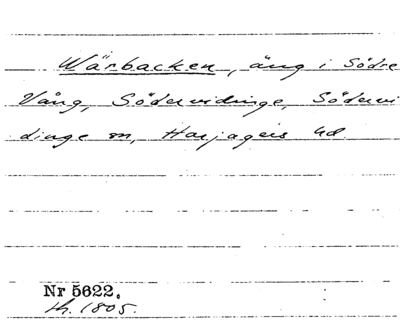 Wärbacken, äng i Södre
Vång, Södervidinge, Södervi
dinge sn, Harjagers hd.
Nr 5622.
th. 1805.